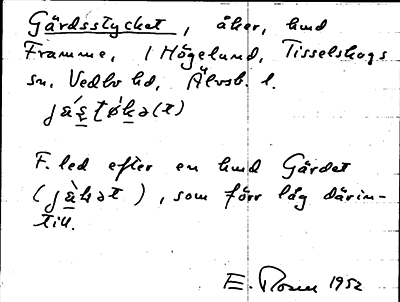 Gärdsstycket, åker, hmd
Framme, 1 Högelund, Tisselskogs
sn, Vedbo hd, Älvsb. l.
F. led efter en hmd Gärdet
(jä̀ḷət), som förr låg därin-
till.
E. Rosen 1952